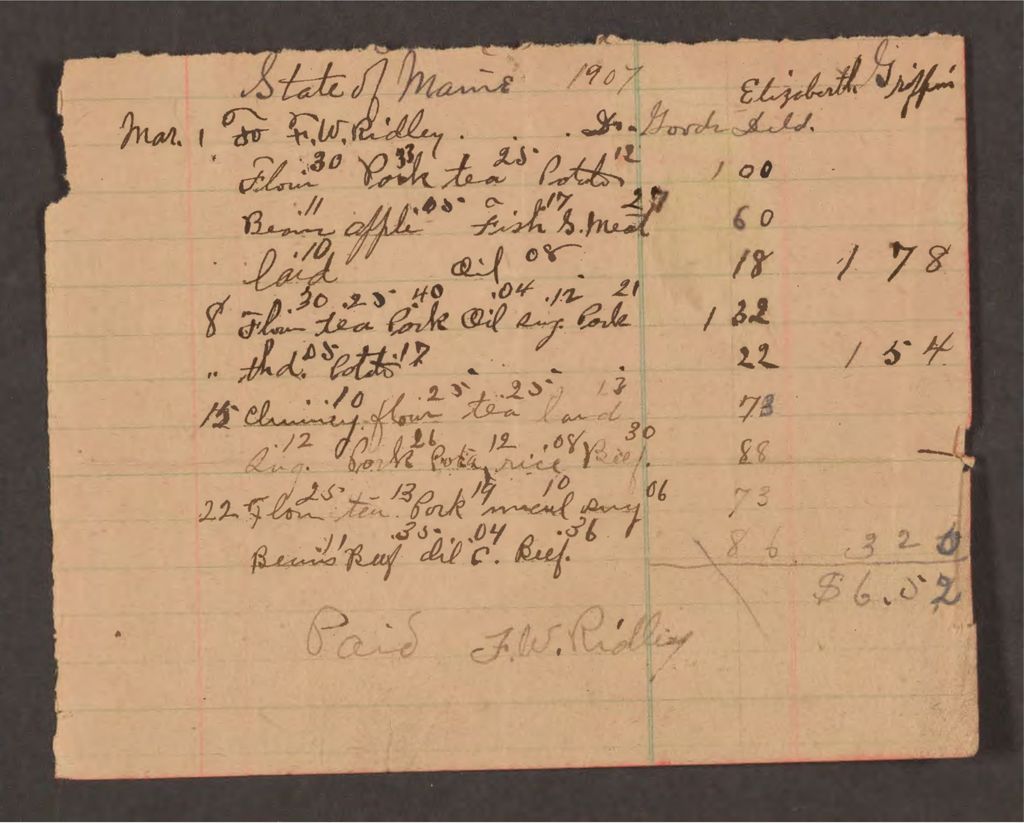 State of Maine 1907 Elizabeth Griffin
Mar. 1 To F.W. Ridley . . . Dr. Goods Deld.
Flour 30 Pork 33 tea 25 Potto 12 1 00
Beans .11 apple .05 Fish .17 S. Meat 27 60
lard .10 Oil 08 18 1 78
8 Flour .30 tea .25 Pork 40 Oil .04 sug. .12 Pork 21 1 32
" thd. .05 Potto .17 22 1 54
15 Chimney .10 flour 25 tea .25 lard 13 73
Sug. .12 Pork 26 Pota 12 rice .08 Beef. 30 88
22 Flour 25 tea .13 Pork 19 meal 10 sug 06 73
Beans 11 Beef .35 Oil .04 C. Beef. .36 86 3 20
$6.52
Paid F.W. Ridley